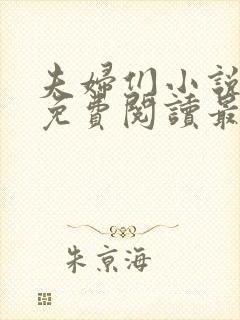 夫婦们小說
免費閱讀最
朱京海